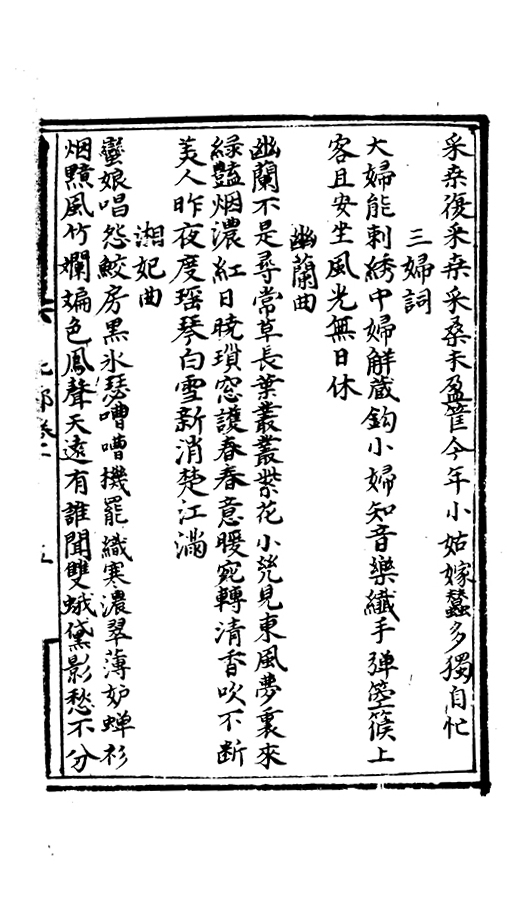 采桒復采桒采桑未盈筐今年小姑嫁蠶多獨自忙
三婦詞
大婦能刺綉中婦觧蔵鈎小婦知音樂纎手弹箜篌上
客且安坐風光無日休
幽蘭曲
幽蘭不是尋常草長葉叢叢紫花小凳見東風夢裏來
緑豔烟濃紅日曉瑣窓護春春意暖宛轉清香吹不断
美人昨夜度瑶琴白雪新消楚江滿
湘妃曲
蠻娘唱怨鮫房黒氷瑟嘈嘈機罷織寒濃翠薄妒蝉衫
烟顰風竹斕斒色鳳聲天遠有誰聞雙蛾黛影愁不分